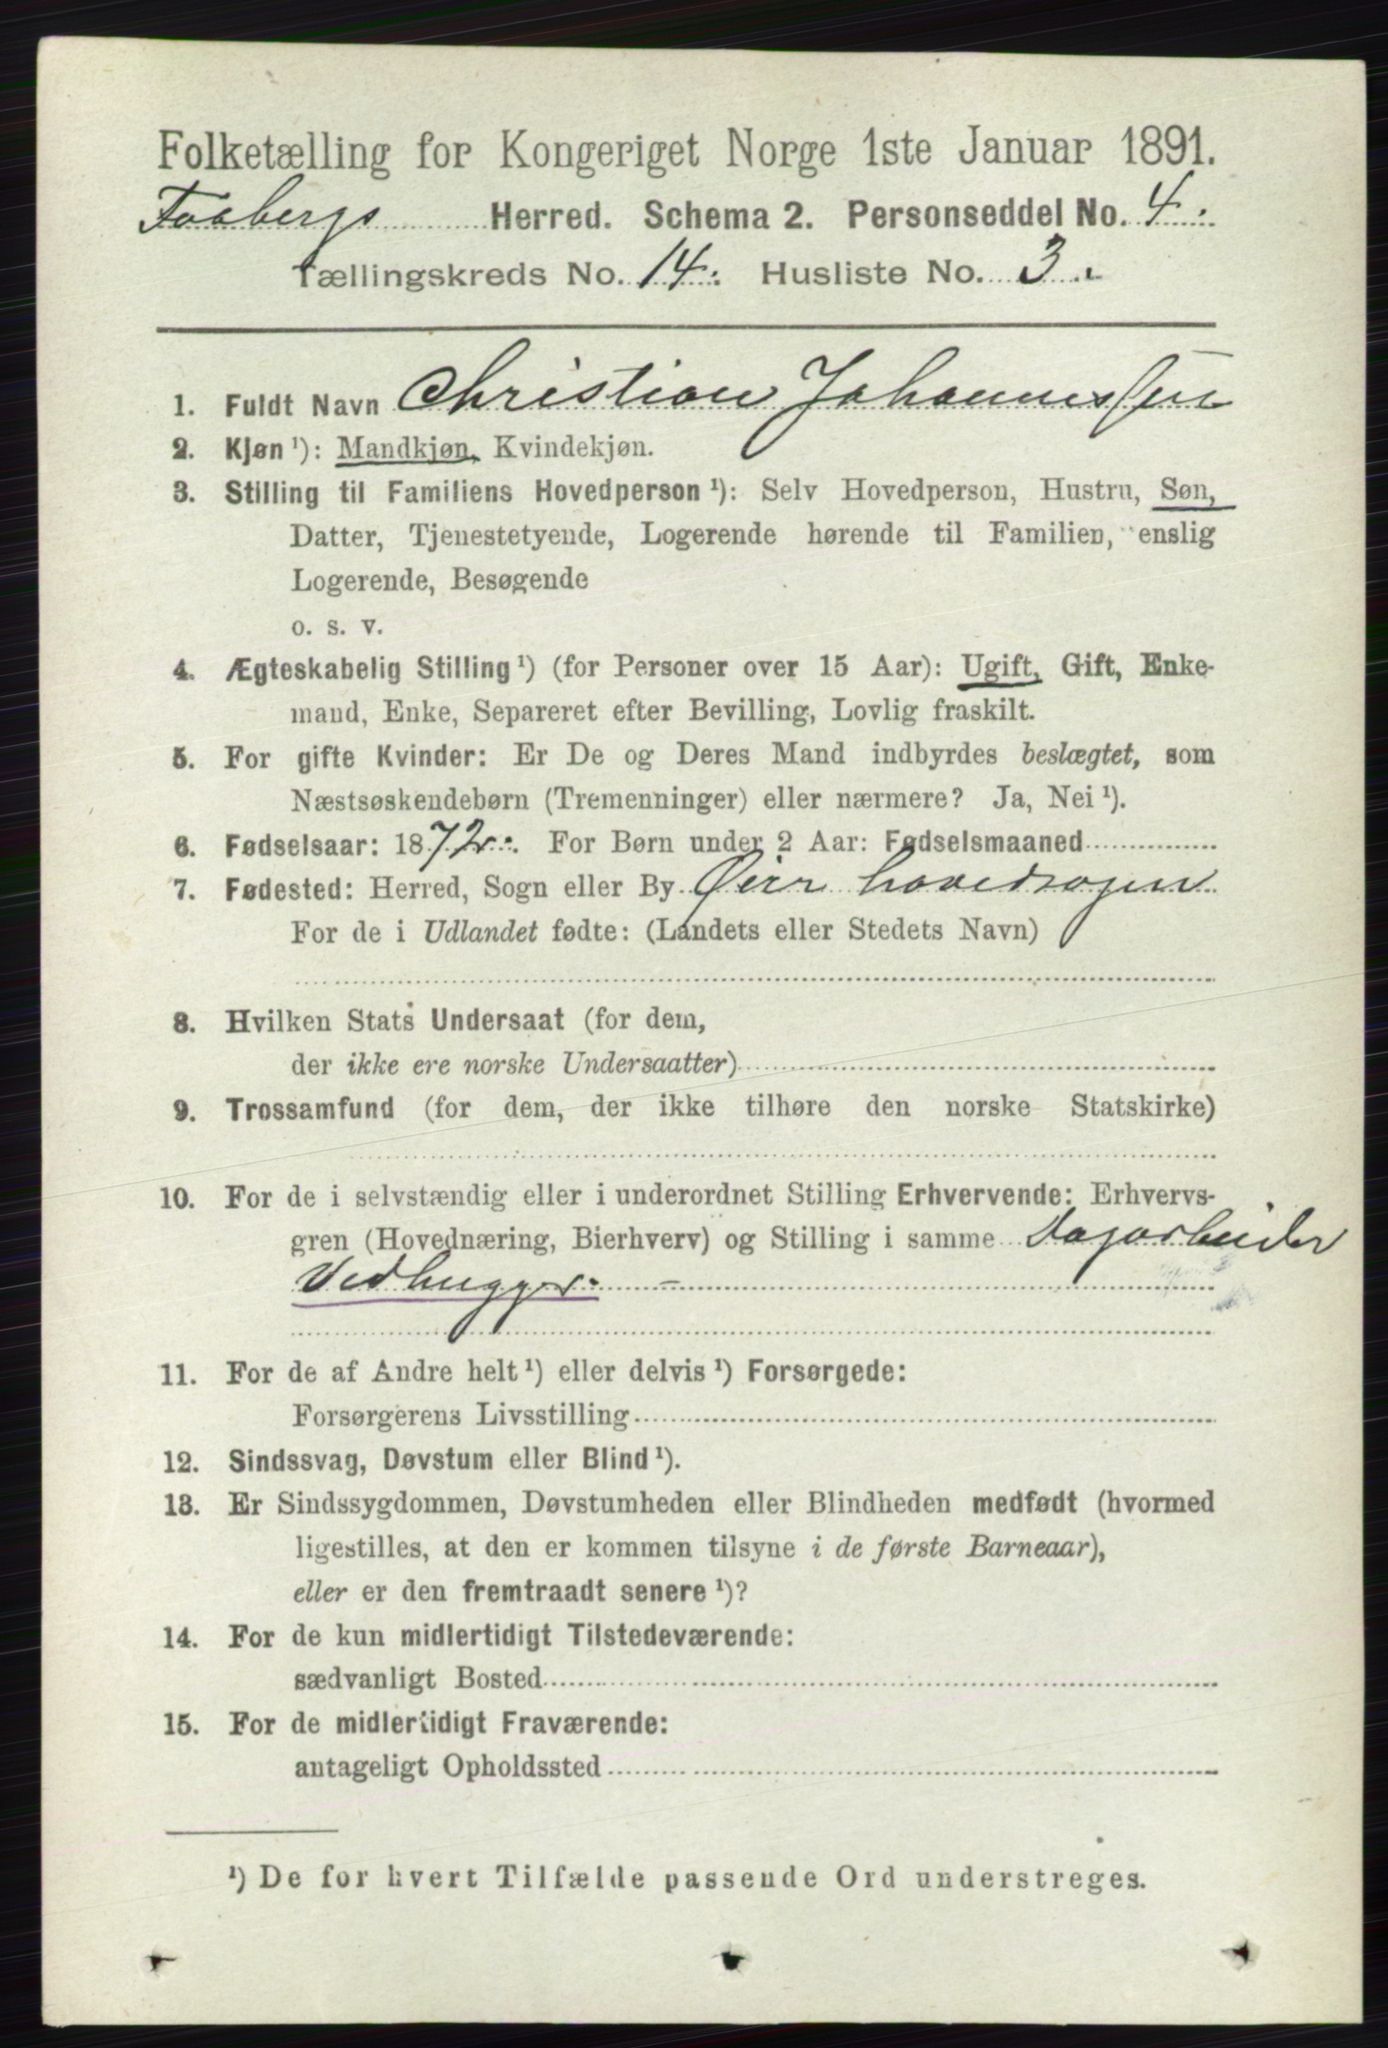 Folketælling for Kongeriget Norge 1ste Januar 1891.
Faabergs Herred. Schema 2. Personseddel No. 4.
Tællingskreds No. 14. Husliste No. 3.
1. Fuldt Navn Christian Johannessen
2. Kjøn ¹): Mandkjøn, Kvindekjøn.
3. Stilling til Familiens Hovedperson ¹): Selv Hovedperson, Hustru, Søn,
Datter, Tjenestetyende, Logerende hørende til Familien, enslig
Logerende, Besøgende
o. s. v.
4. Ægteskabelig Stilling ¹) (for Personer over 15 Aar): Ugift, Gift, Enke-
mand, Enke, Separeret efter Bevilling, Lovlig fraskilt.
5. For gifte Kvinder: Er De og Deres Mand indbyrdes beslægtet, som
Næstsøskendebørn (Tremenninger) eller nærmere? Ja, Nei ¹).
6. Fødselsaar: 1872. For Børn under 2 Aar: Fødselsmaaned
7. Fødested: Herred, Sogn eller By Øier hovedsogn
For de i Udlandet fødte: (Landets eller Stedets Navn)
8. Hvilken Stats Undersaat (for dem,
der ikke ere norske Undersaatter)
9. Trossamfund (for dem, der ikke tilhøre den norske Statskirke)
10. For de i selvstændig eller i underordnet Stilling Erhvervende: Erhvervs-
gren (Hovednæring, Bierhverv) og Stilling i samme Dagarbeider
Vedhugger. –
11. For de af Andre helt ¹) eller delvis ¹) Forsørgede:
Forsørgerens Livsstilling
12. Sindssvag, Døvstum eller Blind ¹).
13. Er Sindssygdommen, Døvstumheden eller Blindheden medfødt (hvormed
ligestilles, at den er kommen tilsyne i de første Barneaar),
eller er den fremtraadt senere ¹)?
14. For de kun midlertidigt Tilstedeværende:
sædvanligt Bosted
15. For de midlertidigt Fraværende:
antageligt Opholdssted
¹) De for hvert Tilfælde passende Ord understreges.